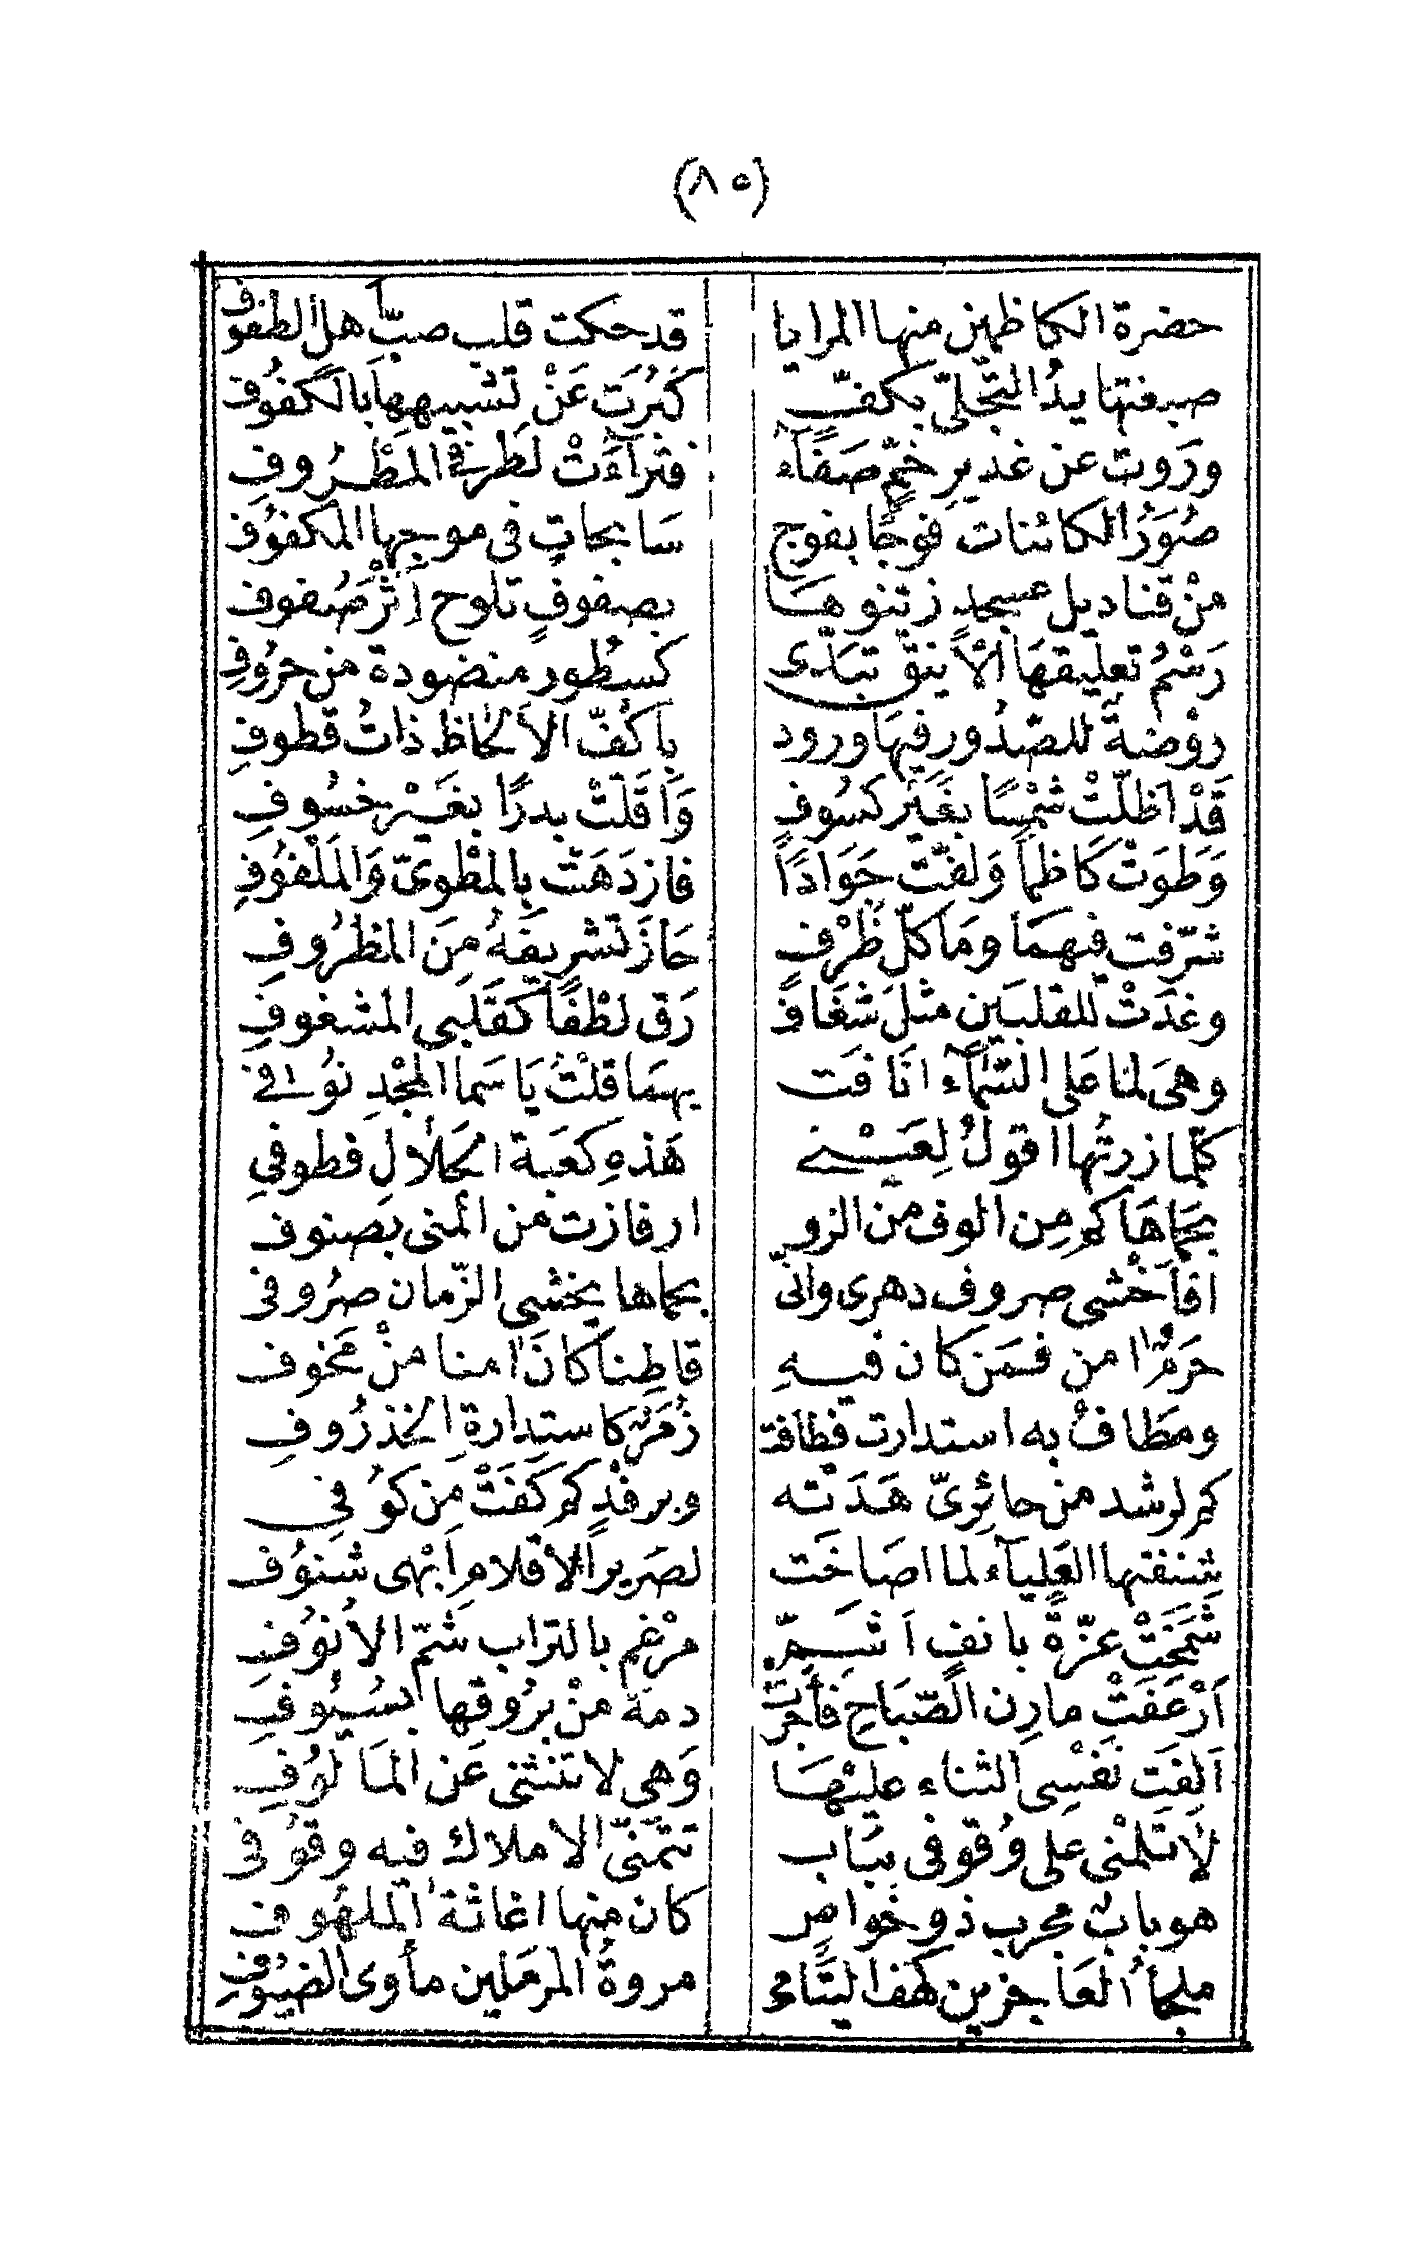 (٨٥)
حضرة الكاظمين منها المرايا قد حكت قلب صبّ أهل الطفوف
صبغتها يدُ التّجلّى بكفّ كَبُرَتْ عَنْ تشبيهها بالكفُوف
ورَوت عن غدير خمّ صَفَآء فترآءَتْ لطرفى المظْرُوفِ
صُوَرُ الكائنات فوجًا بفوج سَابحاتٍ فى موجها المكفُوف
منْ قناديل عسجدٍ زينوهَا بصفوفٍ تلوح إثْرَ صُفوف
رَسْمُ تعليقهَا الأنيق تبَدّى كسطُور منضودة من حرُوفِ
روْضةٌ للصّدُور فيهَا ورود بأكُفّ الألحاظ ذاتُ قطوفِ
قَدْ اظلّتْ شمْسًا بغَيْر كسُوفٍ وَاقَلّتْ بدرًا بغَيْر خسُوفِ
وَطَوَتْ كَاظماً وَلفّت جَوَادًا فازدَهَتْ بالمطْوىّ وَالمَلْفُوفِ
شرّفت فيهمَا ومَا كلّ ظَرْفٍ حَازَ تشريفَهُ مِنَ المظرُوفِ
وغدَتْ للقلبَين مثلَ شغَافٍ رَق لطْفًا كقَلبى المشغوفِ
وهىَ لمّا عَلى السّمآء انَافَت بهمَا قلْتُ يَا سَما المجْدِ نوُفى
كلّما زرتُها اقولُ لِعَيْنى هَذهِ كعَبة الجَلالِ فطوفى
بحمَاهَا كم مِن الوف من الزو ار فازت من المنى بصنوف
افأخْشى صروف دهرى وانّى بحماها يخشى الزّمان صرُوفى
حرَمٌ امن فمَن كان فيهِ قاطِنا كانَ امنا منْ مخَوف
ومطَافٌ به استدارت فطافت زُمَرٌ كاستدارةِ الخذرُوفِ
كم لرشد من حائرىّ هَدَتْه وبرفْدٍ كم كَفَتْ مِن كوُفِى
شنفتها العَليآء لما اصَاخَت لصَرير الأقلام أبْهى شنوُف
شمَخَتْ عزّةً بانفٍ اشَمّ مرْغم بالتراب شمّ الأنوُفِ
اَرْعَفَتْ مارِن الصّبَاحِ فأجْرت دمهُ منْ برُوقها بسُيوُفِ
اَلفَت نَفْسِى الثناء عليْهَا وَهى لا تنثنى عَن المَالوُفِ
لاَ تَلمْنى على وُقوفى ببَاب تتمَنّى الاملاك فيه وقوُفى
هو باب مجرب ذو خواصٍ كان منها اغاثة الملهُوف
ملجأُ العَاجزين كهف اليتَامى مروةُ المرمَلين مأوى الضيُوفِ